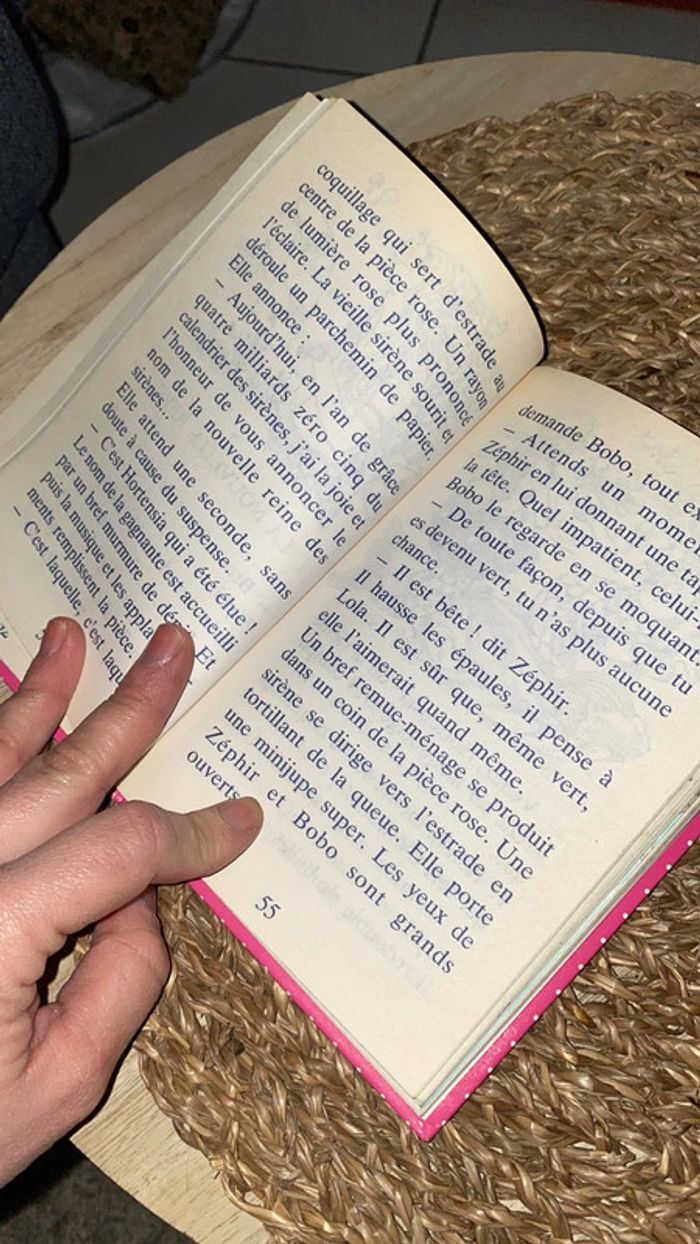 coquillage qui sert d'estrade au
centre de la pièce rose. Un rayon
de lumière rose plus prononcé
l'éclaire. La vieille sirène sourit et
déroule un parchemin de papier.
Elle annonce :
– Aujourd'hui, en l'an de grâce
quatre milliards zéro cinq du
calendrier des sirènes, j'ai la joie et
l'honneur de vous annoncer le
nom de la nouvelle reine des
sirènes...
Elle attend une seconde, sans
doute à cause du suspense.
– C'est Hortensia qui a été élue !
Le nom de la gagnante est accueilli
par un bref murmure de Et
puis la musique et les
ments remplissent la pièce.
– C'est laquelle, c'est
demande Bobo, tout
– Attends un
Zéphir en lui donnant une
la tête. Quel impatient,
Bobo le regarde en se moquant
– De toute façon, depuis que tu
es devenu vert, tu n'as plus aucune
chance.
– Il est bête ! dit Zéphir.
Il hausse les épaules, il pense à
Lola. Il est sûr que, même vert,
elle l'aimerait quand même.
Un bref remue-ménage se produit
dans un coin de la pièce rose. Une
sirène se dirige vers l'estrade en
tortillant de la queue. Elle porte
une minijupe super. Les yeux de
Zéphir et Bobo sont grands
ouverts
55